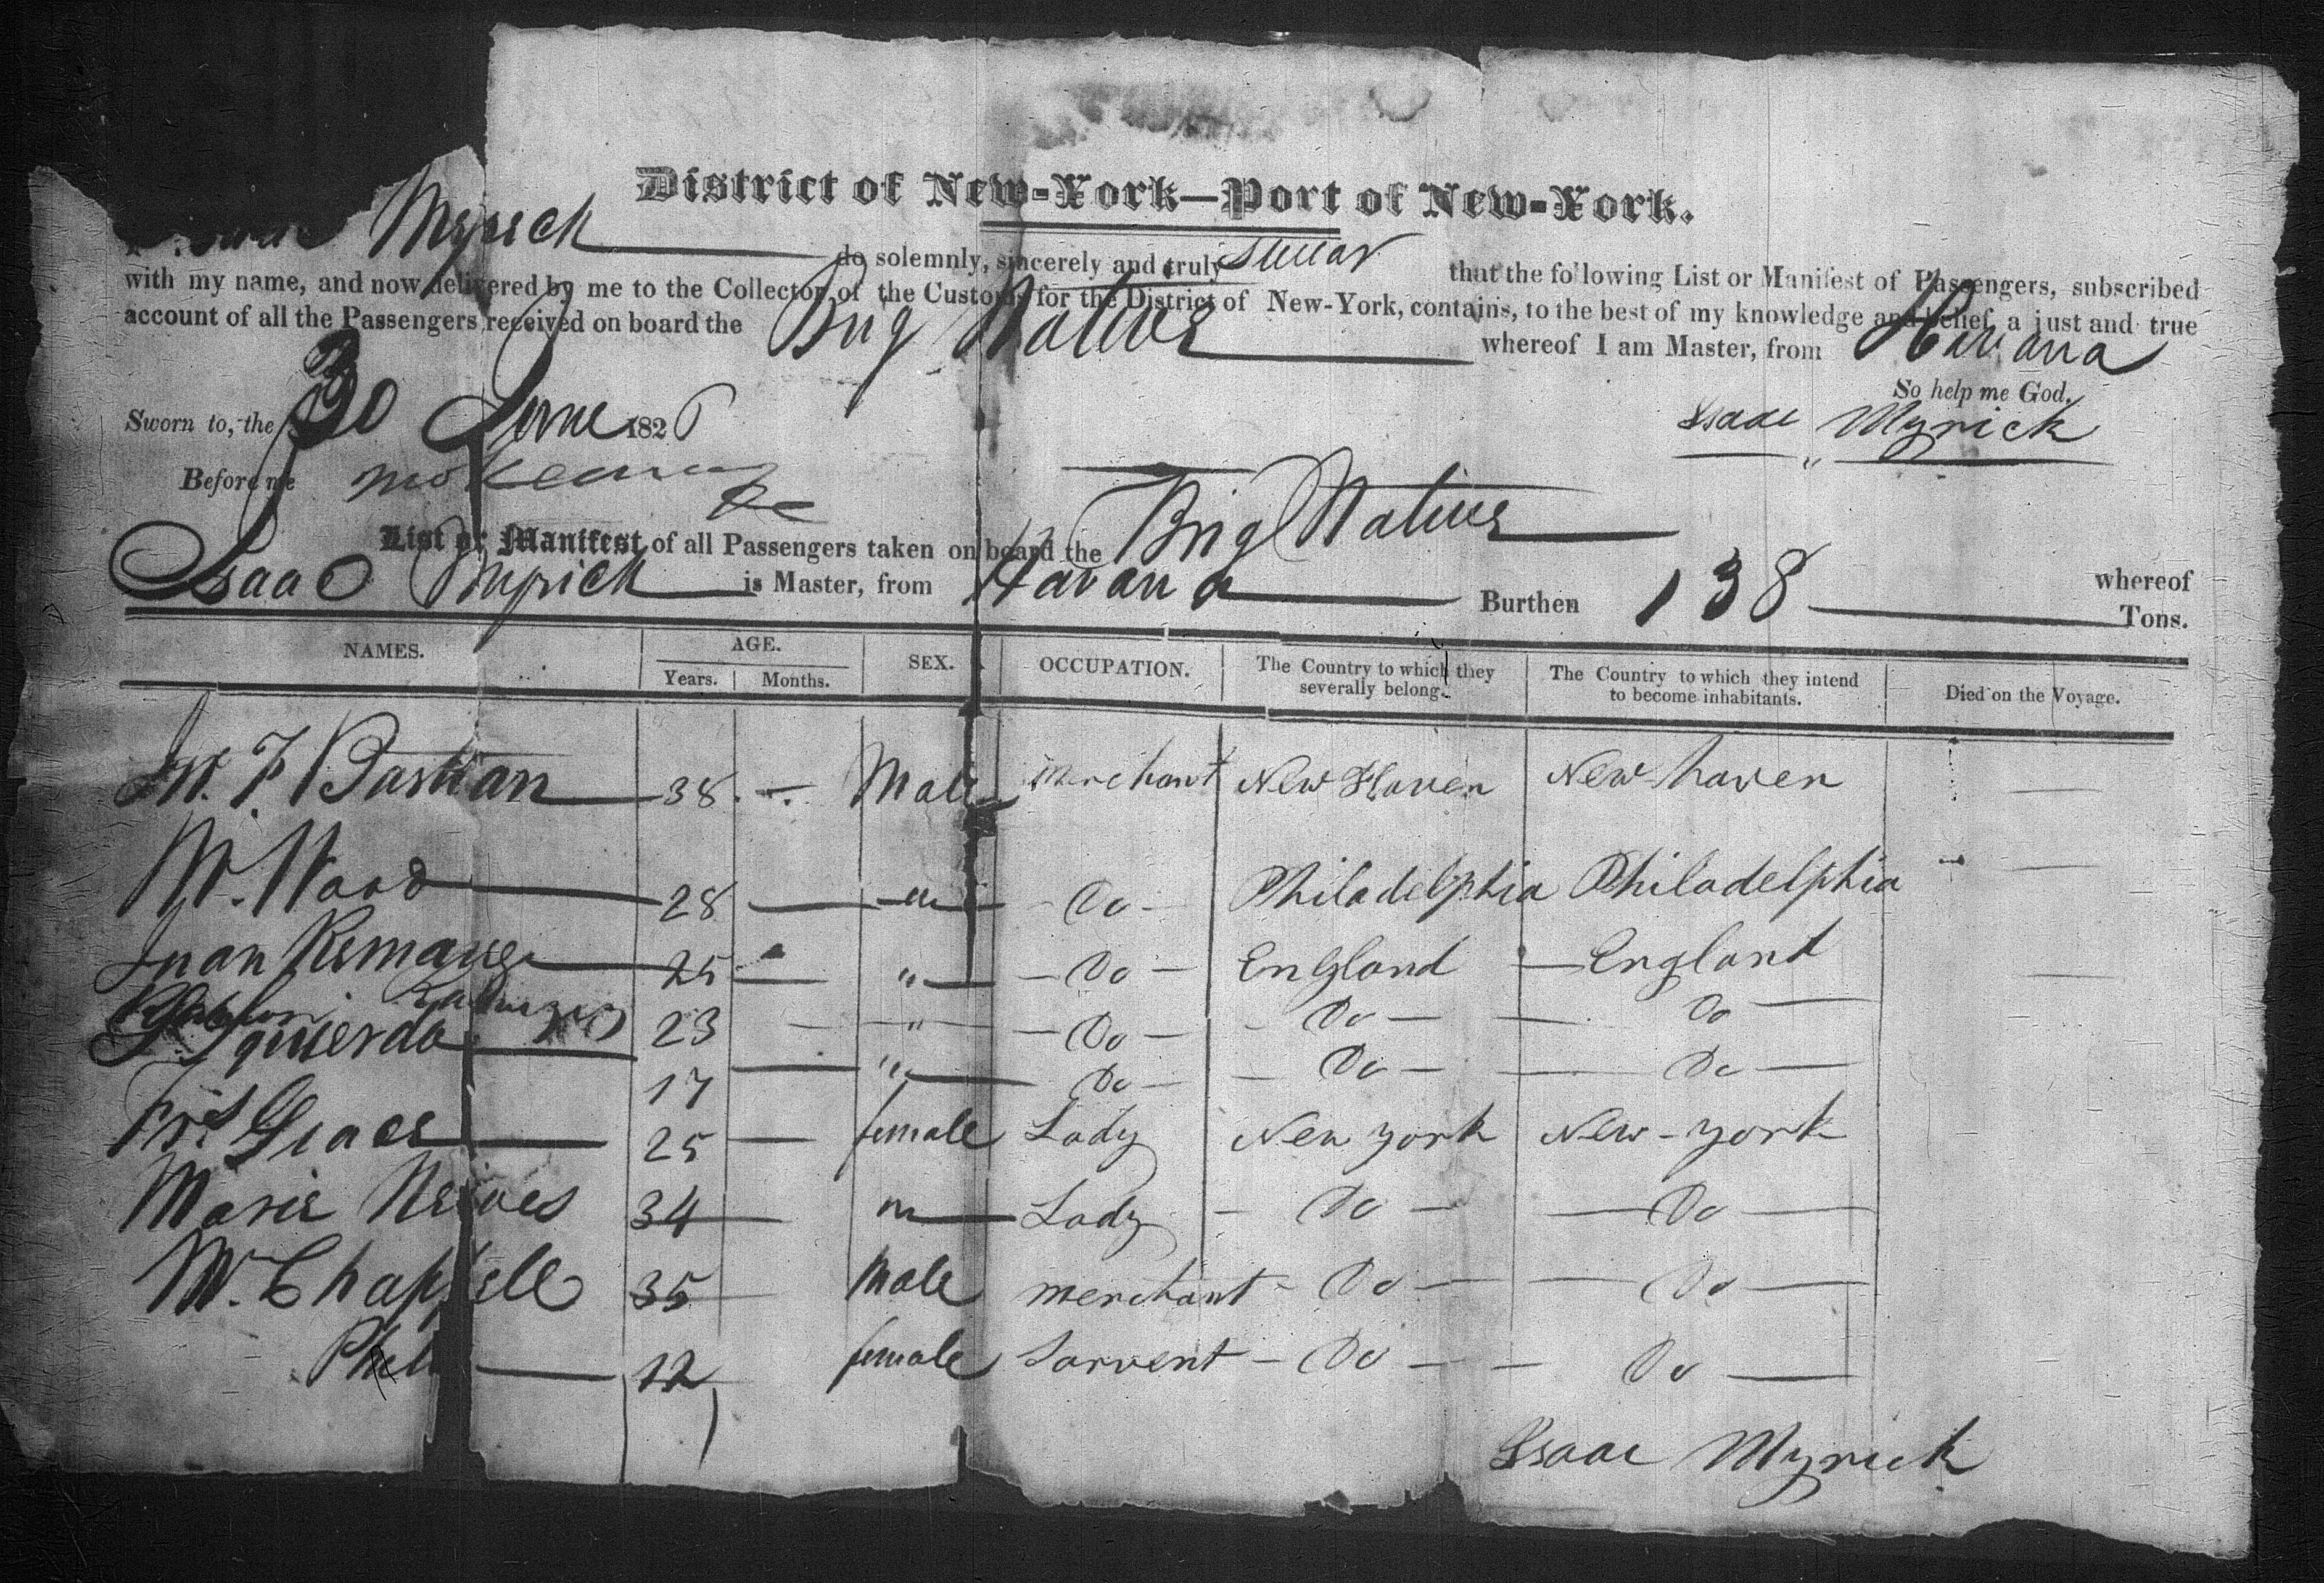 District of New-York—Port of New-York.
Myrick do solemnly, sincerely and truly swear that the following List or Manifest of Passengers, subscribed
with my name, and now delivered by me to the Collector of the Customs for the District of New-York, contains, to the best of my knowledge and belief, a just and true
account of all the Passengers received on board the Brig Native whereof I am Master, from Havana
So help me God.
Sworn to, the 30 June 1826 Isaac Myrick
Before me
List or Manifest of all Passengers taken on board the Brig Native whereof
Isaac Myrick is Master, from Havana Burthen 138 Tons.
NAMES. AGE. SEX. OCCUPATION. The Country to which they severally belong. The Country to which they intend to become inhabitants. Died on the Voyage.
Years. Months.
F Bastian 38 Male Merchant New Haven New haven
W. Wood 28 " Do Philadelphia Philadelphia
Juan 25 " Do England England
23 " Do Do Do
17 " Do Do Do
Grace 25 female Lady New York New-York
Marie 34 " Lady Do Do
W. Chappell 35 Male merchant Do Do
12 female Sarvent Do Do
Isaac Myrick